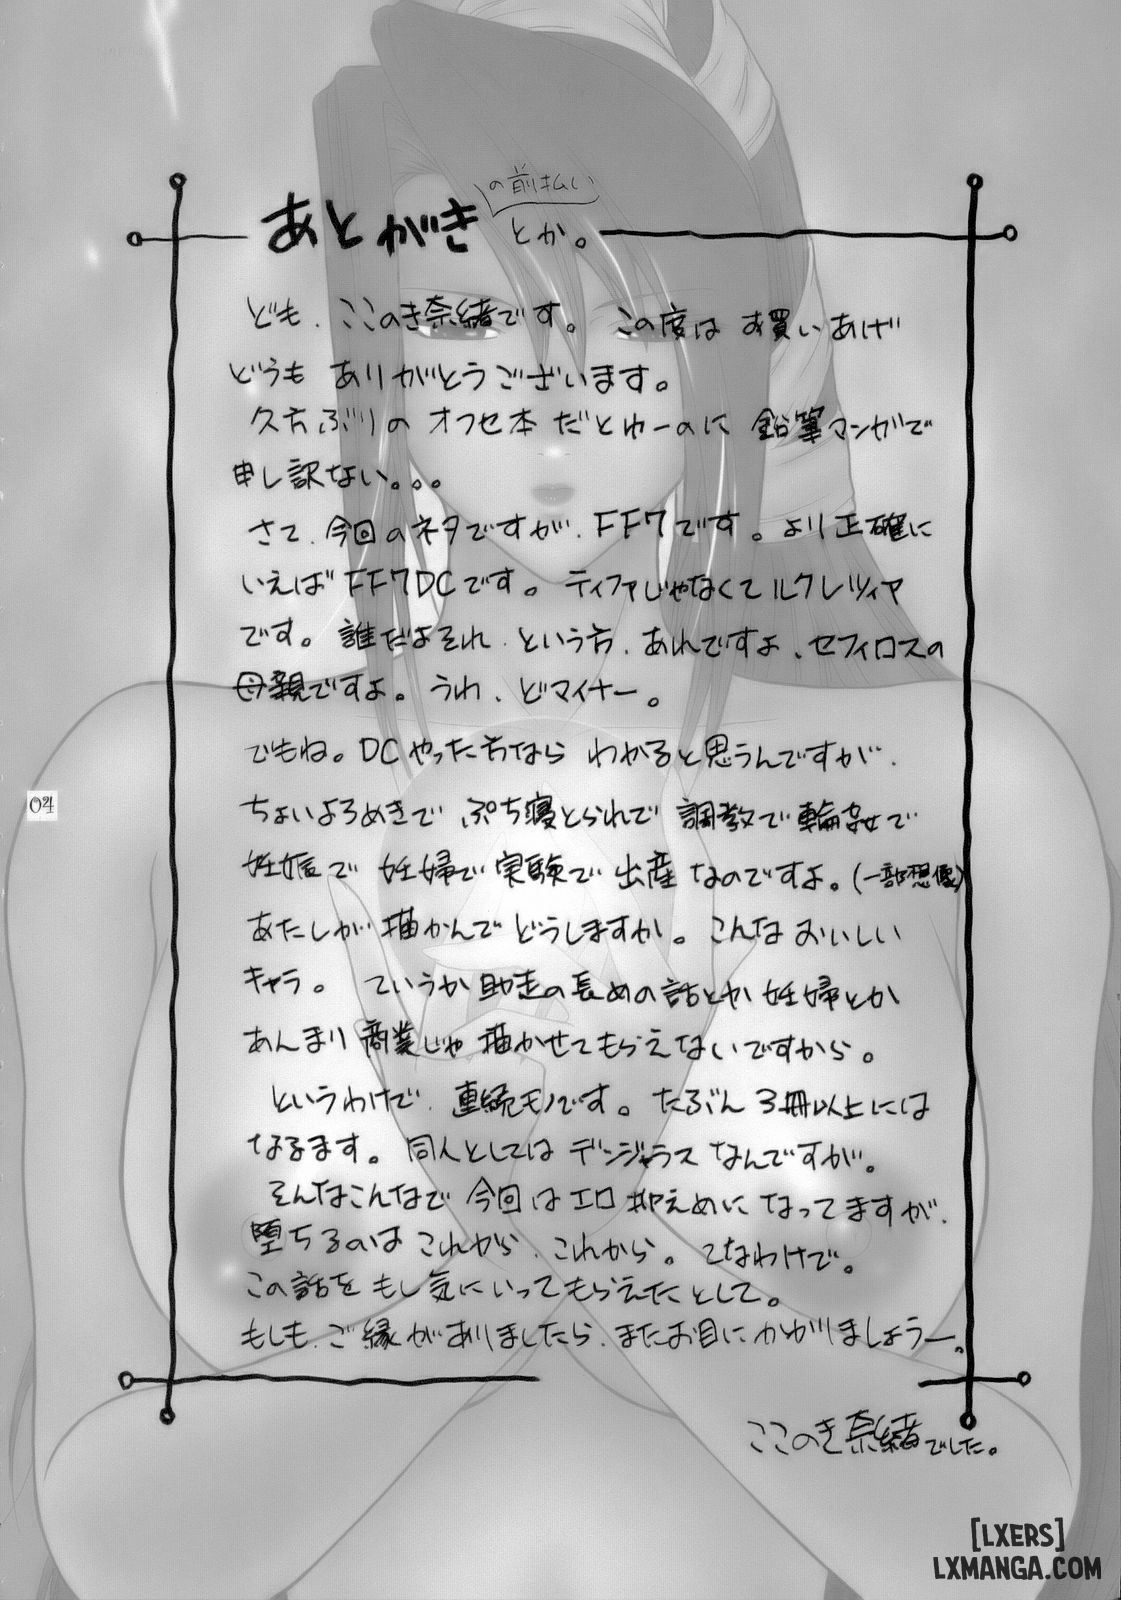 あとがき の前払い とか。
ども、ここのき奈緒です。 この度は お買いあげ
どうも ありがとうございます。
久方ぶりの オフセ本 だとゆーのに 鉛筆マンガで
申し訳ない。。。
さて、今回のネタですが、FF7です。より正確に
いえば FF7DCです。 ティファじゃなくて ルクレツィア
です。 誰だよそれ、という方、あれですよ、セフィロスの
母親ですよ。 うわ、どマイナー。
でもね。DCやった方なら わかると思うんですが、
ちょいよろめきで ぷち寝とられで 調教で輪姦で
妊娠で 妊婦で 実験で 出産なのですよ。(一部想像)
あたしが 描かんで どうしますか。 こんな おいしい
キャラ。 ていうか 助走の長めの話とか 妊婦とか
あんまり 商業じゃ 描かせてもらえないですから。
というわけで、連続モノです。 たぶん 3冊以上には
なるます。 同人としては デンジャラス なんですが。
そんなこんなで 今回はエロ抑えめに なってますが、
堕ちるのは これから、これから。 てなわけで。
この話を もし気にいってもらえたとして。
もしも、ご縁がありましたら、またお目にかかりましょうー。
ここのき奈緒でした。
04
[LXERS]
LXMANGA.COM